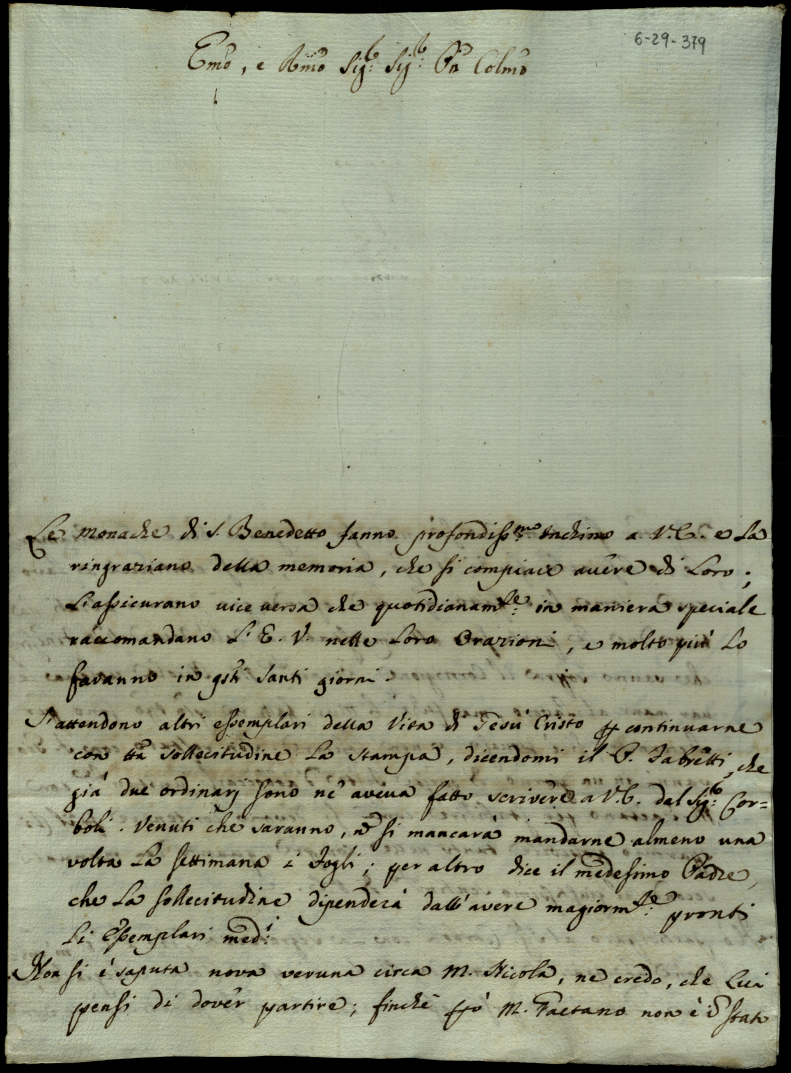 6-29-379
Emo, e Rmo Sigr: Sigr: Pn Colmo
Le monache di S. Benedetto fanno profondissmo Inchino a V.E. e La
ringraziano della memoria, che si compiace avere di Loro;
L'assicurano vice versa che quotidianamte: in maniera speciale
raccomandano L'E.V. nelle Loro Orazioni, e molto più Lo
faranno in qsti Santi giorni.
S'attendono altri essemplari della Vita di Gesù Cristo per continuarne
con tta sollecitudine La stampa, dicendomi il P. Fabretti, che
già due ordinarj sono ne aveva fatto scrivere a V.E. dal Sigr: Cor=
boli. Venuti che saranno, nō si mancarà mandarne almeno una
volta La settimana i fogli; per altro dice il medesimo Padre,
che La sollecitudine dipenderà dall'avere magiormte: pronti
Li Essemplari medi:
Non si è saputa nova veruna circa M. Nicola, ne credo, che Lui
pensi di dover partire; finché però M. Gaetano non è in stato